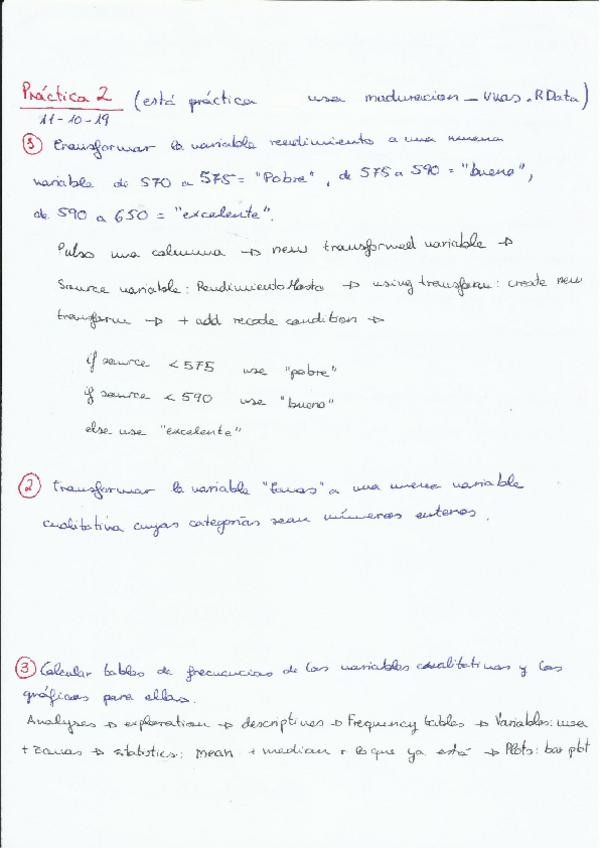 Práctica 2 (está práctica usa maduracion_uvas.RData)
11-10-19
① Transformar la variable rendimiento a una nueva
variable de 570 a 575 = "Pobre", de 575 a 590 = "bueno",
de 590 a 650 = "excelente".
Pulso una columna → new transformed variable →
Source variable: RendimientoMosto → using transform: create new
transform → + add recode condition →
if source < 575 use "pobre"
if source < 590 use "bueno"
else use "excelente"
② Transformar la variable "zonas" a una nueva variable
cualitativa cuyas categorías sean números enteros.
③ Calcular tablas de frecuencias de las variables cualitativas y los
gráficos para ellas.
Analyses → exploration → descriptives → Frequency tables → Variables:
+ zonas → statistics: mean + median + lo que ya está → Plots: bar plot